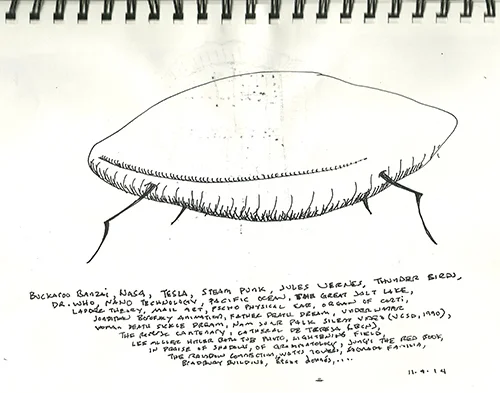 BUCKAROO BANZAI, NASA, TESLA, STEAM PUNK, JULES VERNES, THUNDER BIRDS,
DR. WHO, NANO TECHNOLOGY, PACIFIC OCEAN, THE GREAT SALT LAKE,
THEORY, MAIL ART, PSCHO PHYSICAL EAR, ORGAN OF CORTI,
ANIMATION, FATHER DEATH DREAM, UNDERWATER
WOMAN DEATH SICKLE DREAM, NAM JUNE PAIK SILENT VIDEO (UCSD, 1990),
THE CENTENARY, CATHEDRAL DE TERESA (BCN),
LEE MILLER HITLER BATH TUB PHOTO, LIGHTNING FIELD,
IN PRAISE OF SHADOWS, OF GRAMMATOLOGY, JUNG'S THE RED BOOK,
THE RAINBOW CONNECTION, WATTS TOWERS, SAGRADA FAMILIA,
BRADBURY BUILDING, ....
11.9.14